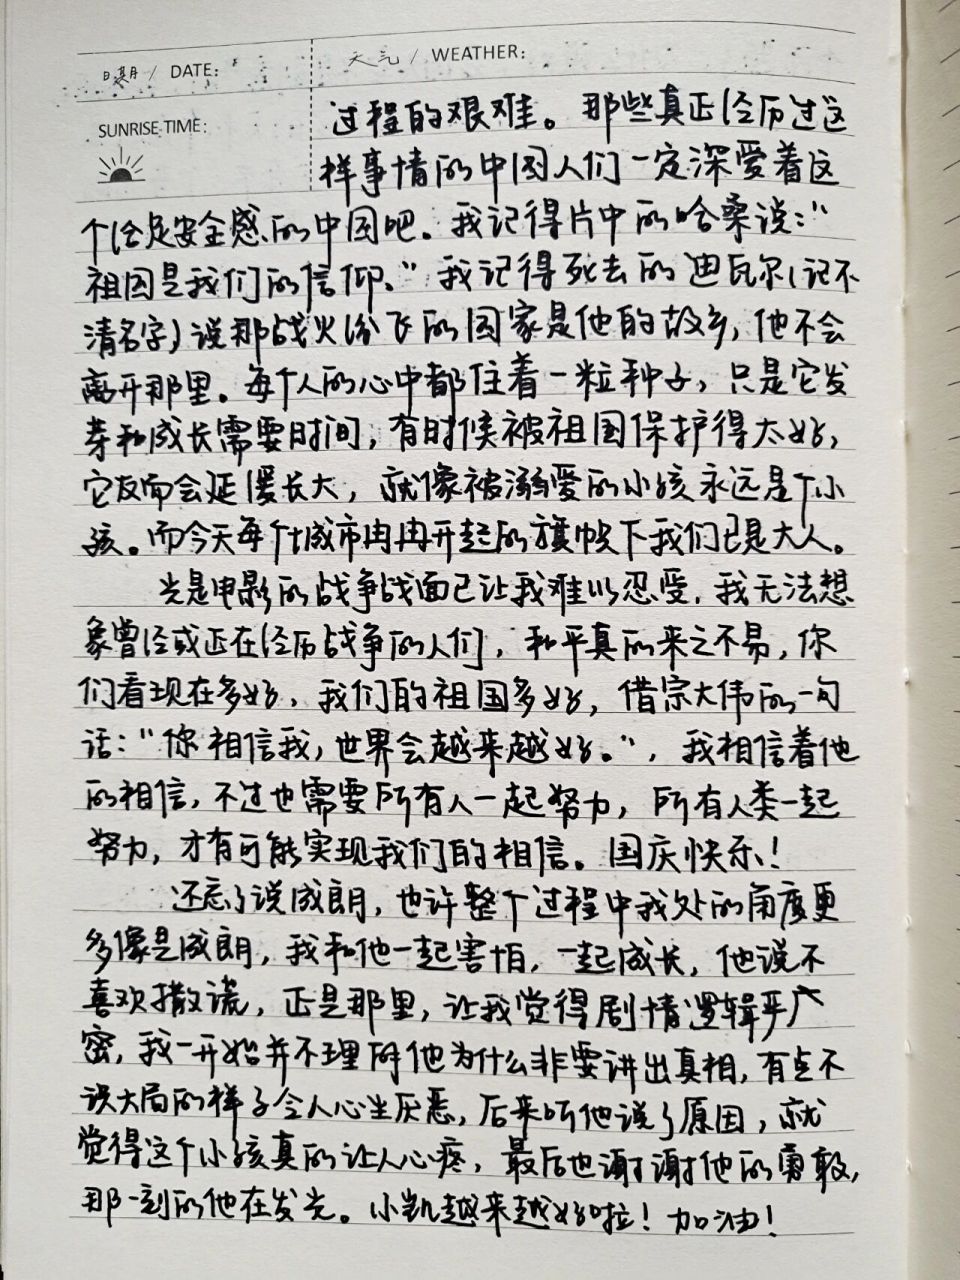 日期 / DATE:
天气 / WEATHER:
SUNRISE TIME:
过程的艰难。那些真正经历过这
样事情的中国人们一定深爱着这
个给足安全感的中国吧。我记得片中的哈桑说：“
祖国是我们的信仰。”我记得死去的迪瓦尔（记不
清名字）说那战火纷飞的国家是他的故乡，他不会
离开那里。每个人的心中都住着一粒种子，只是它发
芽和成长需要时间，有时候被祖国保护得太好，
它反而会延缓长大，就像被溺爱的小孩永远是个小
孩。而今天每个城市冉冉升起的旗帜下我们已是大人。
光是电影的战争战面已让我难以忍受，我无法想
象曾经或正在经历战争的人们，和平真的来之不易，你
们看现在多好，我们的祖国多好，借宗大伟的一句
话：“你相信我，世界会越来越好。”，我相信着他
的相信，不过也需要所有人一起努力，所有人类一起
努力，才有可能实现我们的相信。国庆快乐！
还忘了说成朗，也许整个过程中我处的角度更
多像是成朗，我和他一起害怕，一起成长，他说不
喜欢撒谎，正是那里，让我觉得剧情逻辑严
密，我一开始并不理解他为什么非要讲出真相，有点不
识大局的样子令人心生厌恶，后来听他说了原因，就
觉得这个小孩真的让人心疼，最后也谢谢他的勇敢，
那一刻的他在发光。小凯越来越好啦！加油！